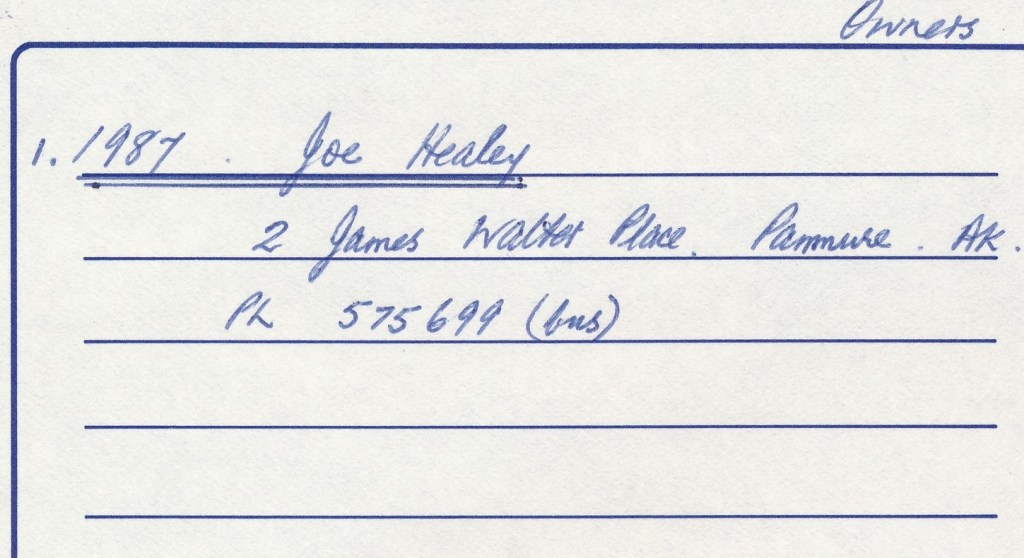 Owners
1. 1987 . Joe Healey
2 James Walter Place. Panmure. AK.
Ph 575699 (bus)